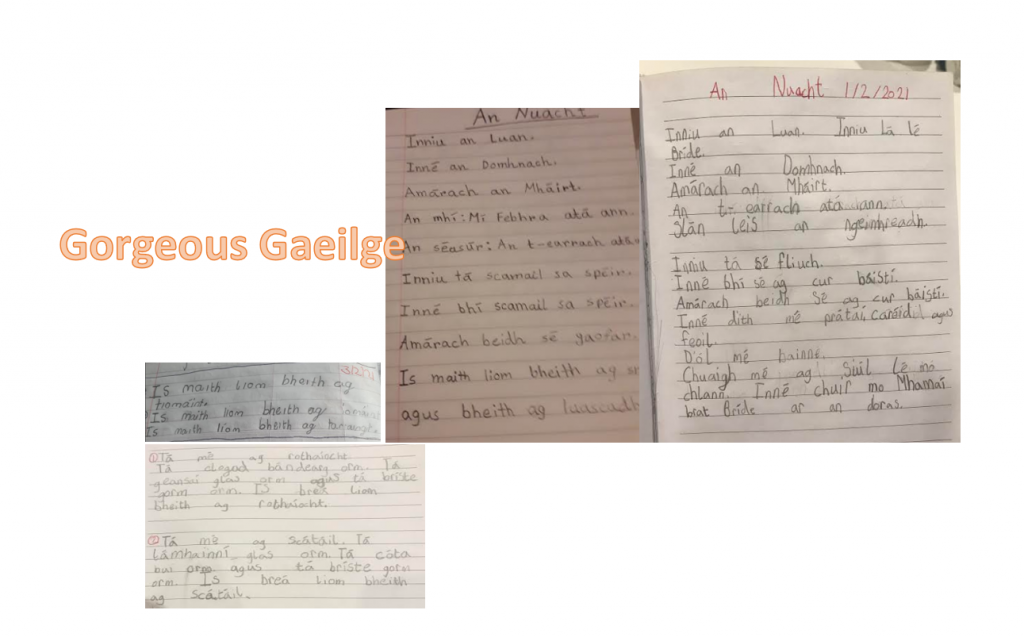 Gorgeous Gaeilge
An Nuacht
Inniu an Luan.
Inné an Domhnach.
Amárach an Mháirt.
An mhí: Mí Febhra atá ann.
An séasúr: An t-earrach atá
Inniu tá scamail sa spéir.
Inné bhí scamail sa spéir.
Amárach beidh sé gaofar.
Is maith liom bheith ag
agus bheith ag luascadh
An Nuacht 1/2/2021
Inniu an Luan. Inniu Lá lé
Bríde.
Inné an Domhnach.
Amárach an Mháirt.
An t-earrach atá ann.
Slán leis an ngeimhreadh.
Inniu tá sé fliuch.
Inné bhí sé ag cur báistí.
Amárach beidh sé ag cur báistí.
Inné dith mé prátaí, agus
feoil.
D'ól mé bainne.
Chuaigh mé ag Siúl Lé mo
chlann. Inné chuir mo Mhamaí
brat Bríde ar an doras.
Is maith liom bheith ag
tiomáint.
Is maith liom bheith ag
Is maith liom bheith ag
① Tá mé ag rothaíocht
Tá clogad bándearg orm. Tá
geansaí glas orm agus tá bríste
gorm orm. Is breá liom
bheith ag rothaíocht.
② Tá mé ag scátáil. Tá
lámhainní glas orm. Tá cóta
buí orm agus tá bríste gorm
orm. Is breá liom bheith
ag scátáil.